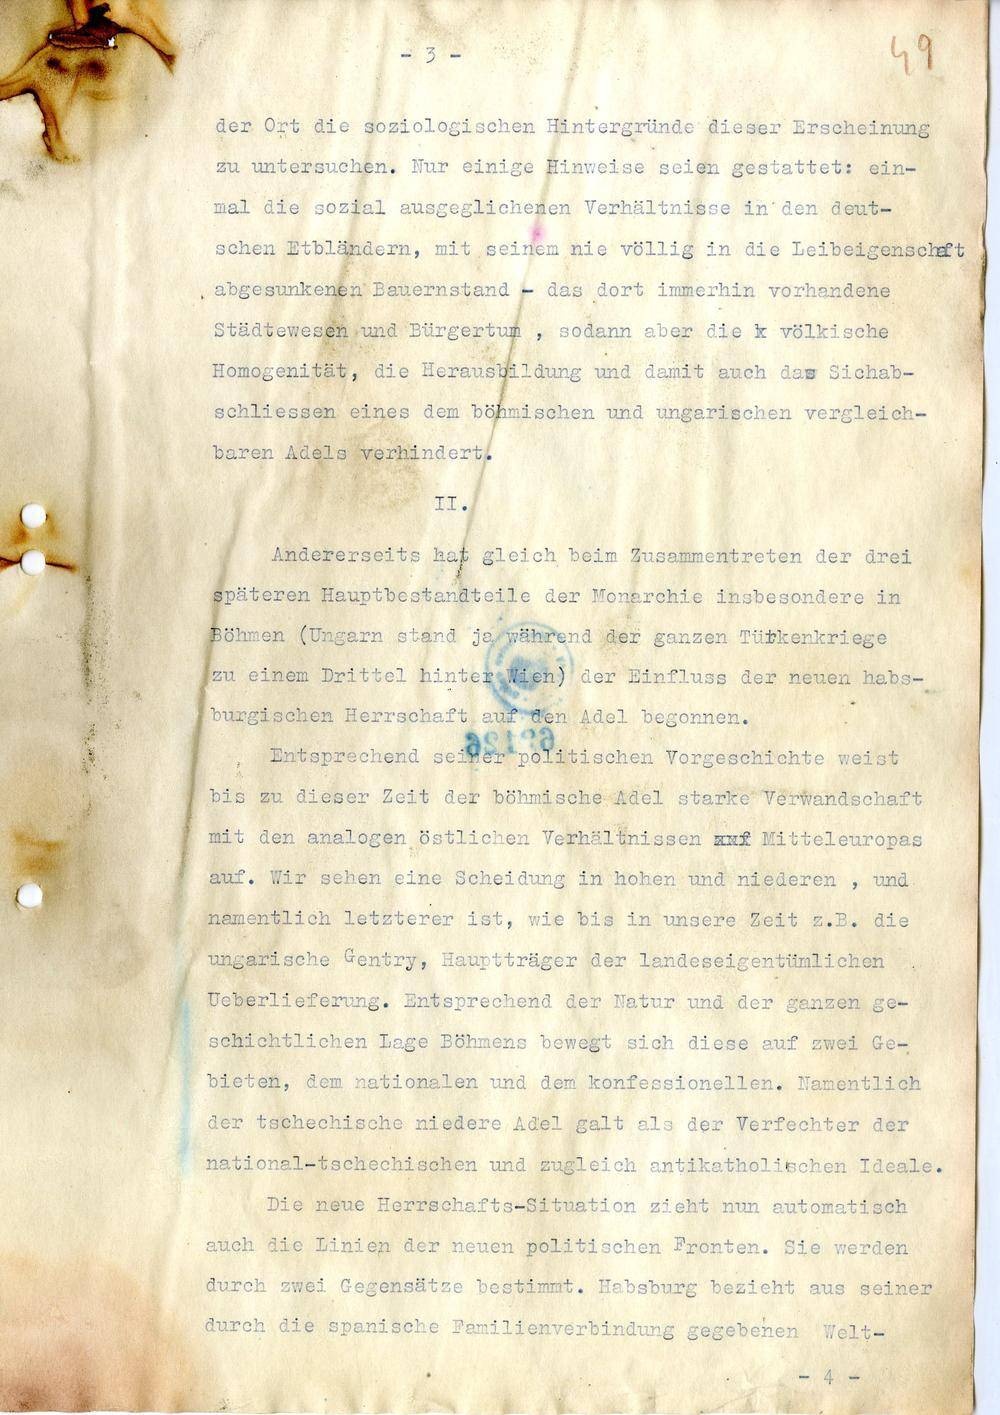 - 3 -
49
der Ort die soziologischen Hintergründe dieser Erscheinung
zu untersuchen. Nur einige Hinweise seien gestattet: ein-
mal die sozial ausgeglichenen Verhältnisse in den deut-
schen Etbländern, mit seinem nie völlig in die Leibeigenschaft
abgesunkenen Bauernstand - das dort immerhin vorhandene
Städtewesen und Bürgertum , sodann aber die k völkische
Homogenität, die Herausbildung und damit auch das Sichab-
schliessen eines dem böhmischen und ungarischen vergleich-
baren Adels verhindert.
II.
Andererseits hat gleich beim Zusammentreten der drei
späteren Hauptbestandteile der Monarchie insbesondere in
Böhmen (Ungarn stand ja während der ganzen Türkenkriege
zu einem Drittel hinter Wien) der Einfluss der neuen habs-
burgischen Herrschaft auf den Adel begonnen.
Entsprechend seiner politischen Vorgeschichte weist
bis zu dieser Zeit der böhmische Adel starke Verwandschaft
mit den analogen östlichen Verhältnissen xxf Mitteleuropas
auf. Wir sehen eine Scheidung in hohen und niederen , und
namentlich letzterer ist, wie bis in unsere Zeit z.B. die
ungarische Gentry, Hauptträger der landeseigentümlichen
Ueberlieferung. Entsprechend der Natur und der ganzen ge-
schichtlichen Lage Böhmens bewegt sich diese auf zwei Ge-
bieten, dem nationalen und dem konfessionellen. Namentlich
der tschechische niedere Adel galt als der Verfechter der
national-tschechischen und zugleich antikatholischen Ideale.
Die neue Herrschafts-Situation zieht nun automatisch
auch die Linien der neuen politischen Fronten. Sie werden
durch zwei Gegensätze bestimmt. Habsburg bezieht aus seiner
durch die spanische Familienverbindung gegebenen Welt-
- 4 -